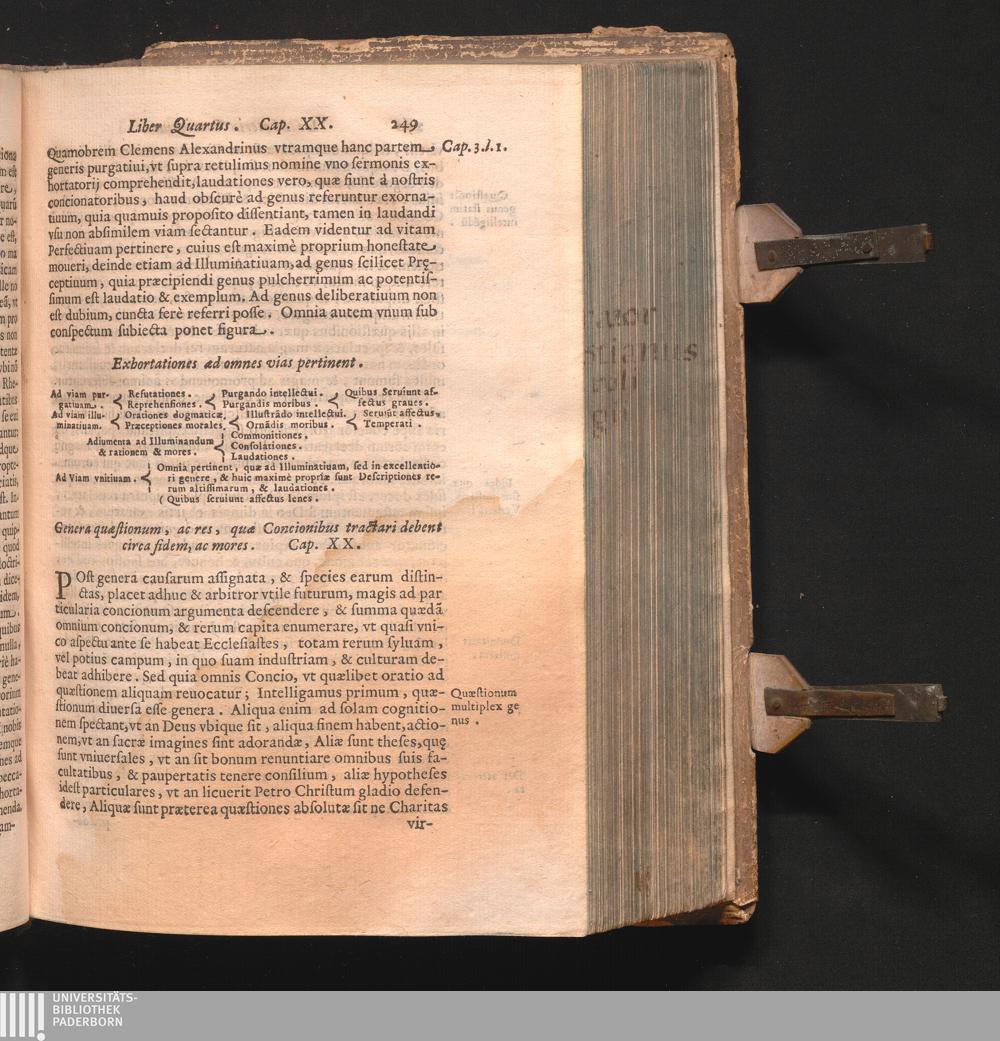 Liber Quartus. Cap. XX. 249
Quamobrem Clemens Alexandrinus vtramque hanc partem Cap. 3. l. 1.
generis purgatiui, vt ſupra retulimus nomine vno ſermonis ex-
hortatorij comprehendit, laudationes vero, quæ fiunt á noſtris
concionatoribus, haud obſcurè ad genus referuntur exorna-
tiuum, quia quamuis propoſito diſſentiant, tamen in laudandi
vſu non abſimilem viam ſectantur. Eadem videntur ad vitam
Perfectiuam pertinere, cuius eſt maximè proprium honeſtate
moueri, deinde etiam ad Illuminatiuam, ad genus ſcilicet Prę
ceptiuum, quia præcipiendi genus pulcherrimum ac potentiſ-
ſimum eſt laudatio & exemplum. Ad genus deliberatiuum non
eſt dubium, cuncta ferè referri poſſe. Omnia autem vnum ſub
conſpectum ſubiecta ponet figura.
Exhortationes ad omnes vias pertinent.
Ad viam pur- Refutationes. Purgando intellectui. Quibus Seruiunt af-
gatiuam. Reprehenſiones. Purgandis moribus. fectus graues.
Ad viam illu- Orationes dogmaticæ, Illuſtrãdo intellectui. Seruiũt affectus,
minatiuam. Præceptiones morales, Ornãdis moribus. Temperati.
Adiumenta ad Illuminandum Commonitiones,
& rationem & mores. Conſolationes.
Laudationes.
Omnia pertinent, quæ ad Illuminatiuam, ſed in excellentio-
Ad Viam vnitiuam. ri genere, & huic maximè propriæ ſunt Deſcriptiones re-
rum altiſſimarum, & laudationes.
Quibus ſeruiunt affectus lenes.
Genera quæſtionum, ac res, quæ Concionibus tractari debent
circa fidem, ac mores. Cap. XX.
POſt genera cauſarum aſſignata, & ſpecies earum diſtin-
ctas, placet adhuc & arbitror vtile futurum, magis ad par
ticularia concionum argumenta deſcendere, & ſumma quædã
omnium concionum, & rerum capita enumerare, vt quaſi vni-
co aſpectu ante ſe habeat Eccleſiaſtes, totam rerum ſyluam,
vel potius campum, in quo ſuam induſtriam, & culturam de-
beat adhibere. Sed quia omnis Concio, vt quælibet oratio ad
quæſtionem aliquam reuocatur; Intelligamus primum, quæ-
ſtionum diuerſa eſſe genera. Aliqua enim ad ſolam cognitio-
nem ſpectant, vt an Deus vbique ſit, aliqua finem habent, actio-
nem, vt an ſacræ imagines ſint adorandæ, Aliæ ſunt theſes, quę
ſunt vniuerſales, vt an ſit bonum renuntiare omnibus ſuis fa-
cultatibus, & paupertatis tenere conſilium, aliæ hypotheſes
ideſt particulares, vt an licuerit Petro Chriſtum gladio defen-
dere, Aliquæ ſunt præterea quæſtiones abſolutæ ſit ne Charitas
vir-
Quæſtionum
multiplex ge
nus.
UNIVERSITÄTS-
BIBLIOTHEK
PADERBORN